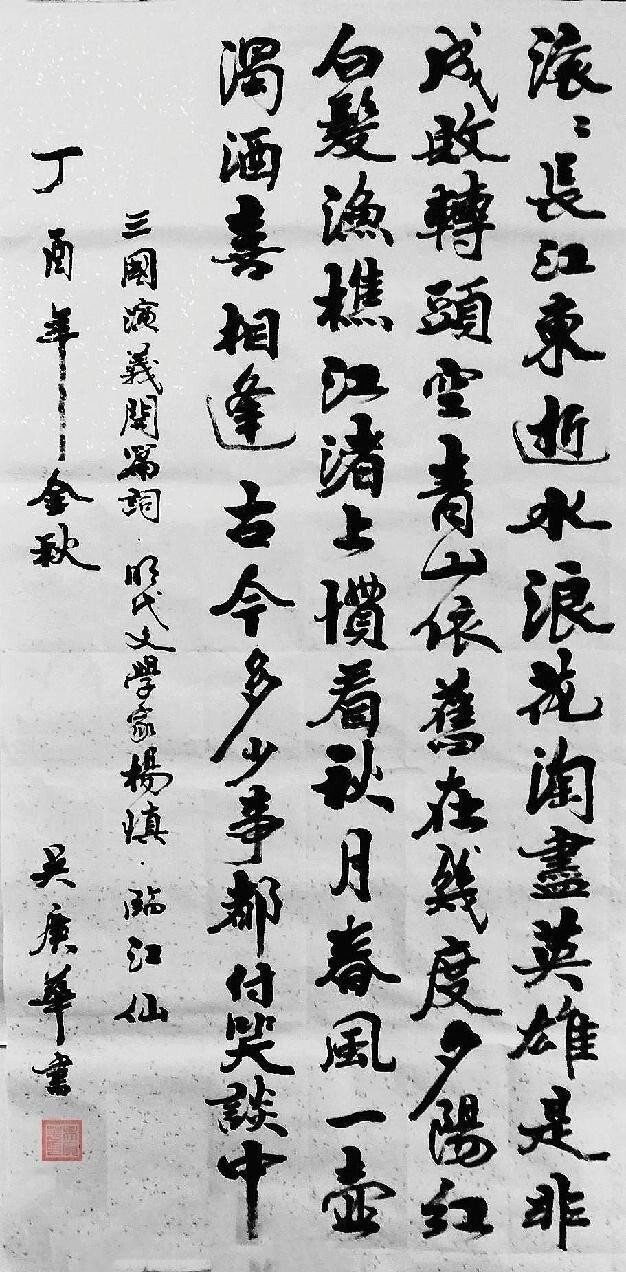 滚〻長江東逝水浪花淘盡英雄是非
成敗轉頭空青山依舊在幾度夕陽紅
白髮漁樵江渚上慣看秋月春風一壺
濁酒喜相逢古今多少事都付笑談中
三國演義開篇詞·明代文學家楊慎·臨江仙
丁酉年金秋
吴廣華書